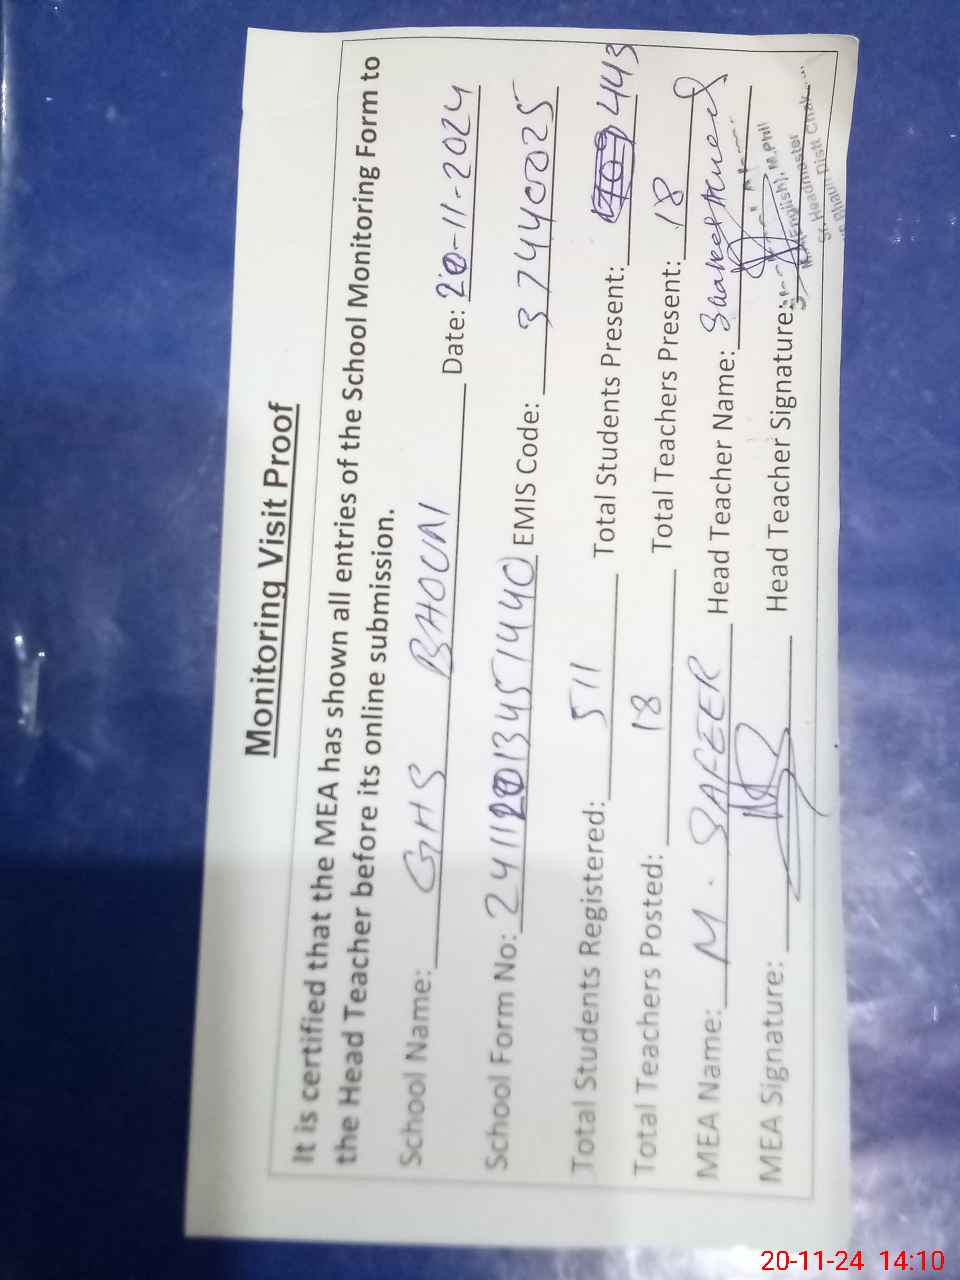 Monitoring Visit Proof
It is certified that the MEA has shown all entries of the School Monitoring Form to
the Head Teacher before its online submission.
School Name: GHS BHOUN Date: 20-11-2024
School Form No: 24112013451440 EMIS Code: 37440025
Total Students Registered: 511 Total Students Present: 443
Total Teachers Posted: 18 Total Teachers Present: 18
MEA Name: M. SAFEER Head Teacher Name: Shakeel Ahmed
MEA Signature: Head Teacher Signature:
(English), M.Phill
Sr. Headmaster
Bhaun Distt Chak
20-11-24 14:10